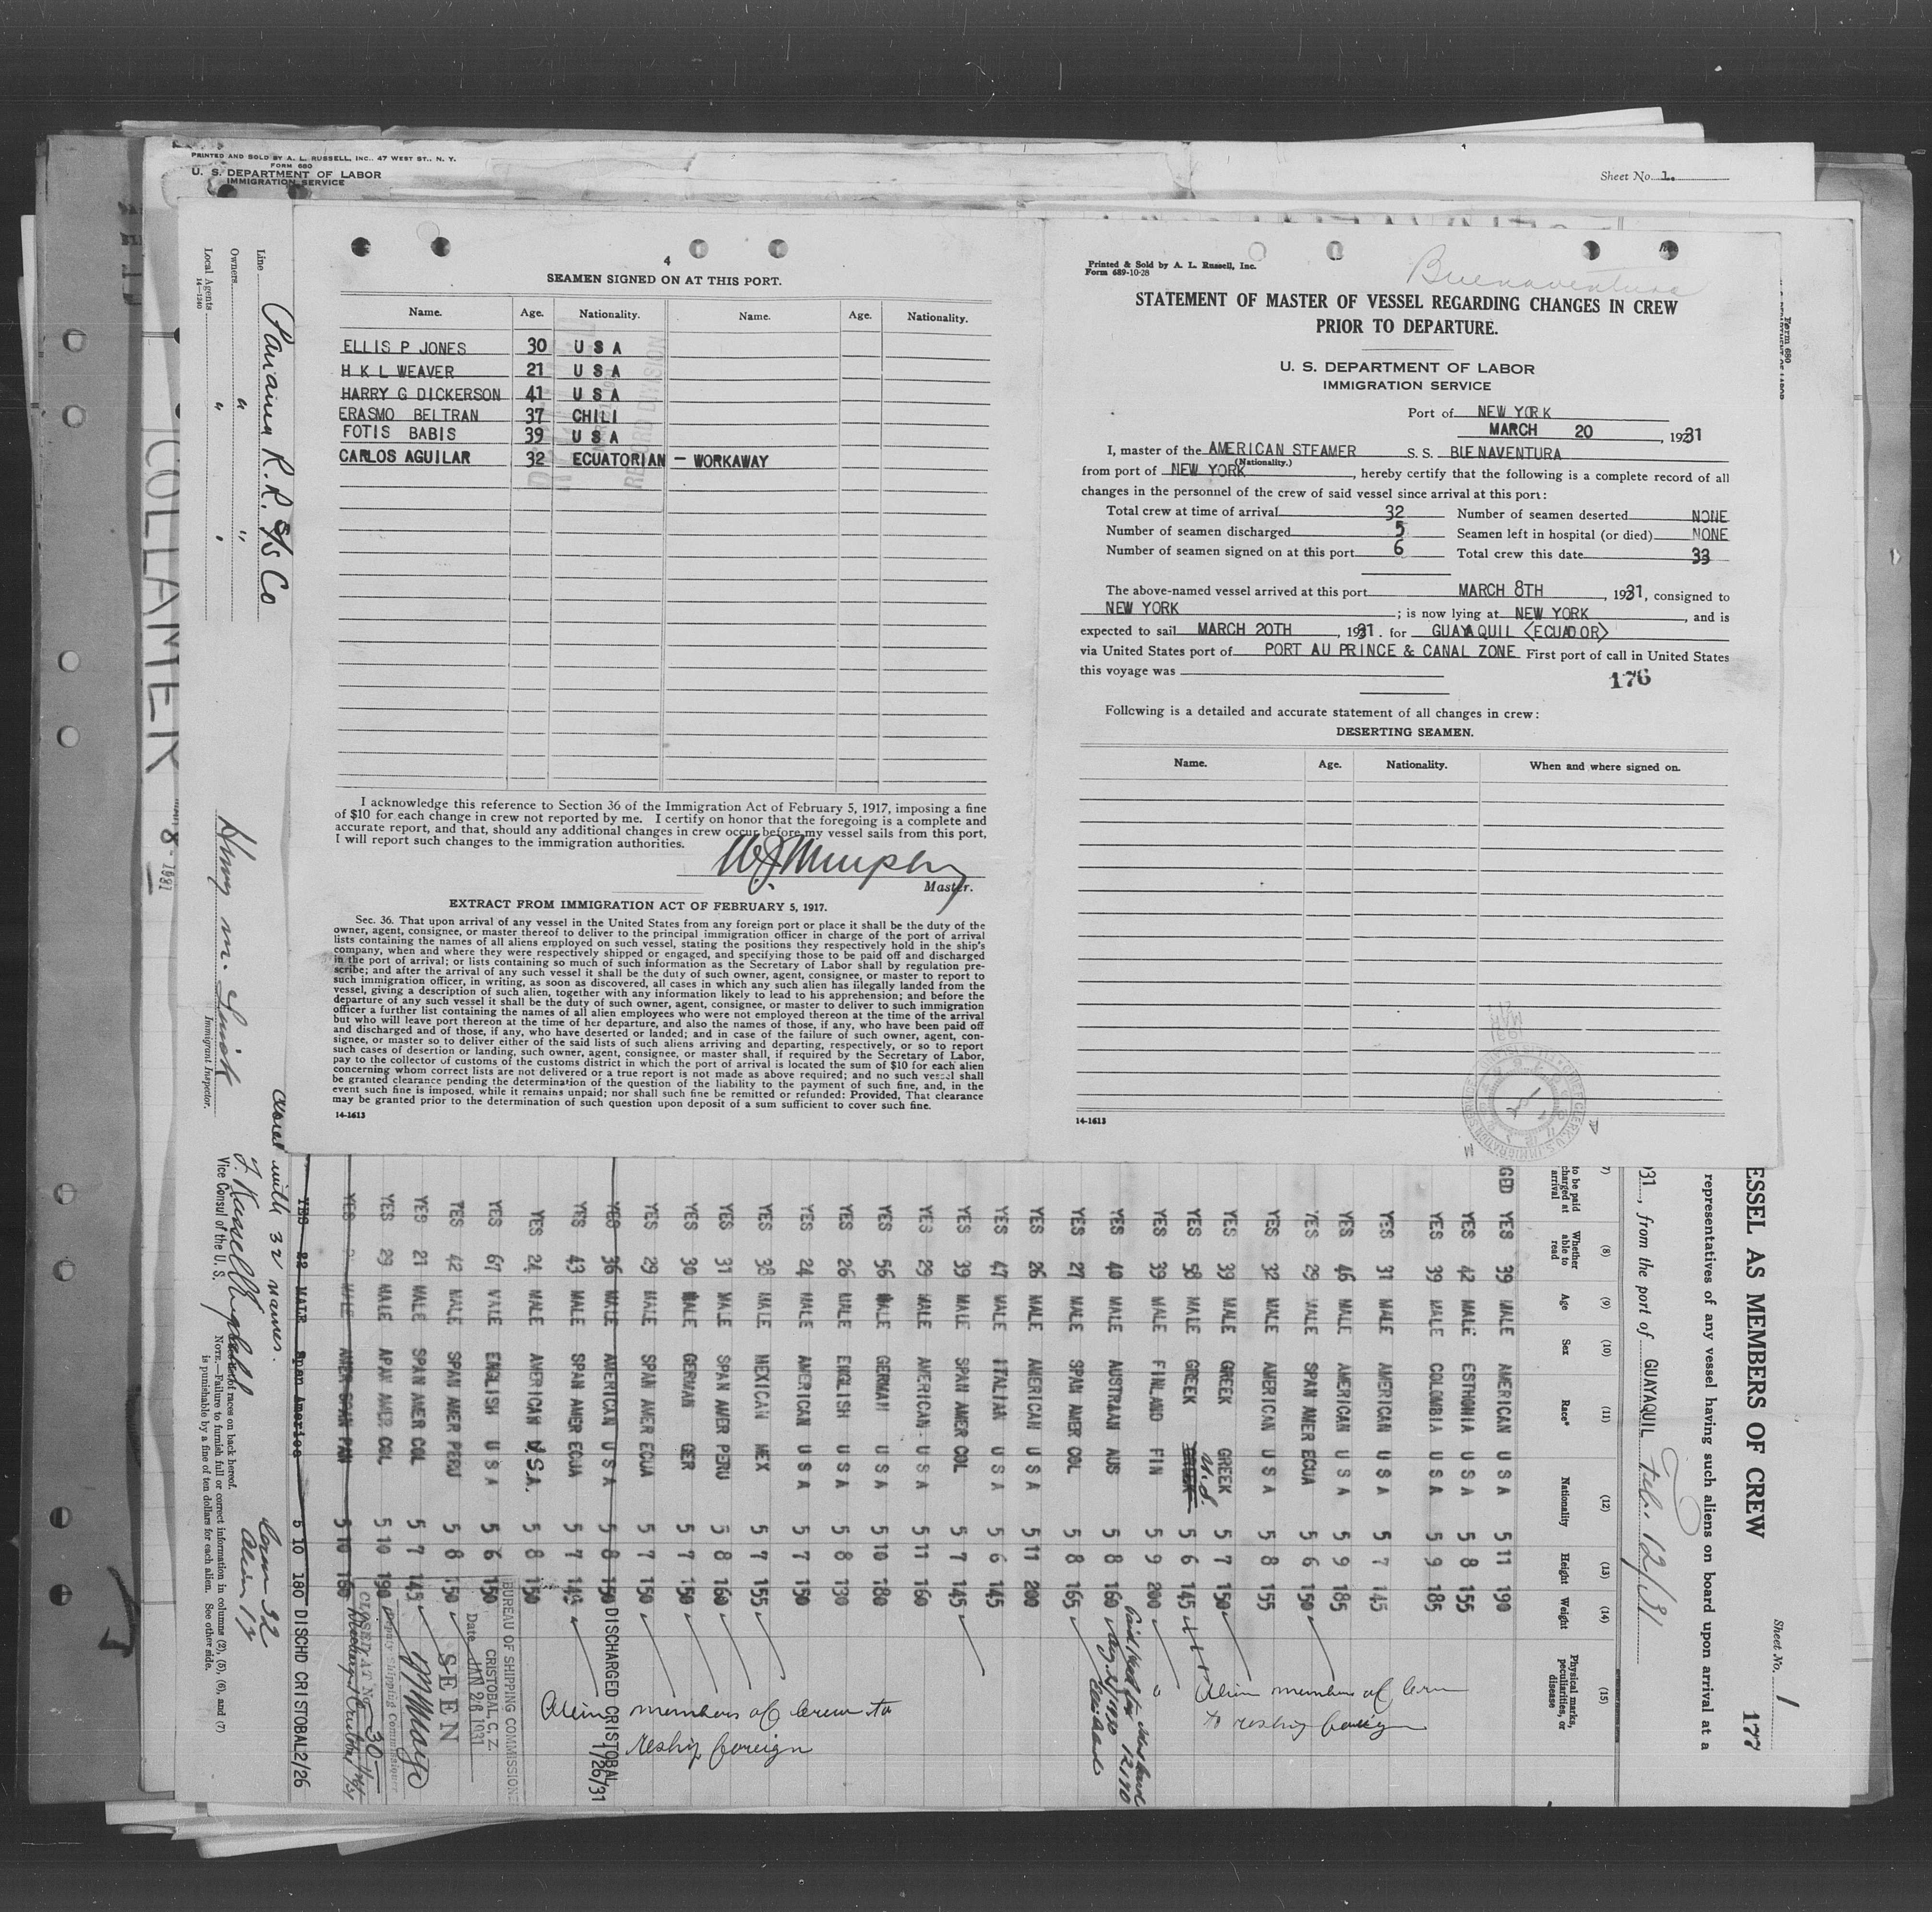 PRINTED AND SOLD BY A. L. RUSSELL, INC., 47 WEST ST., N. Y.
FORM 680
U. S. DEPARTMENT OF LABOR
IMMIGRATION SERVICE
Sheet No. 1.
4
SEAMEN SIGNED ON AT THIS PORT.
Name. Age. Nationality. Name. Age. Nationality.
ELLIS P JONES 30 U S A
H K L WEAVER 21 U S A
HARRY G DICKERSON 41 U S A
ERASMO BELTRAN 37 CHILI
FOTIS BABIS 39 U S A
CARLOS AGUILAR 32 ECUATORIAN - WORKAWAY
I acknowledge this reference to Section 36 of the Immigration Act of February 5, 1917, imposing a fine
of $10 for each change in crew not reported by me. I certify on honor that the foregoing is a complete and
accurate report, and that, should any additional changes in crew occur before my vessel sails from this port,
I will report such changes to the immigration authorities.
W J Murphy
Master.
EXTRACT FROM IMMIGRATION ACT OF FEBRUARY 5, 1917.
Sec. 36. That upon arrival of any vessel in the United States from any foreign port or place it shall be the duty of the
owner, agent, consignee, or master thereof to deliver to the principal immigration officer in charge of the port of arrival
lists containing the names of all aliens employed on such vessel, stating the positions they respectively hold in the ship's
company, when and where they were respectively shipped or engaged, and specifying those to be paid off and discharged
in the port of arrival; or lists containing so much of such information as the Secretary of Labor shall by regulation pre-
scribe; and after the arrival of any such vessel it shall be the duty of such owner, agent, consignee, or master to report to
such immigration officer, in writing, as soon as discovered, all cases in which any such alien has illegally landed from the
vessel, giving a description of such alien, together with any information likely to lead to his apprehension; and before the
departure of any such vessel it shall be the duty of such owner, agent, consignee, or master to deliver to such immigration
officer a further list containing the names of all alien employees who were not employed thereon at the time of the arrival
but who will leave port thereon at the time of her departure, and also the names of those, if any, who have been paid off
and discharged and of those, if any, who have deserted or landed; and in case of the failure of such owner, agent, con-
signee, or master so to deliver either of the said lists of such aliens arriving and departing, respectively, or so to report
such cases of desertion or landing, such owner, agent, consignee, or master shall, if required by the Secretary of Labor,
pay to the collector of customs of the customs district in which the port of arrival is located the sum of $10 for each alien
concerning whom correct lists are not delivered or a true report is not made as above required; and no such vessel shall
be granted clearance pending the determination of the question of the liability to the payment of such fine, and, in the
event such fine is imposed, while it remains unpaid; nor shall such fine be remitted or refunded: Provided, That clearance
may be granted prior to the determination of such question upon deposit of a sum sufficient to cover such fine.
14-1613
Printed & Sold by A. L. Russell, Inc.
Form 689-10-28
Buenaventura
STATEMENT OF MASTER OF VESSEL REGARDING CHANGES IN CREW
PRIOR TO DEPARTURE.
U. S. DEPARTMENT OF LABOR
IMMIGRATION SERVICE
Port of NEW YORK
MARCH 20, 1931
I, master of the AMERICAN STEAMER S. S. BUENAVENTURA
(Nationality.)
from port of NEW YORK, hereby certify that the following is a complete record of all
changes in the personnel of the crew of said vessel since arrival at this port:
Total crew at time of arrival 32 Number of seamen deserted NONE
Number of seamen discharged 5 Seamen left in hospital (or died) NONE
Number of seamen signed on at this port 6 Total crew this date 33
The above-named vessel arrived at this port MARCH 8TH, 1931, consigned to
NEW YORK; is now lying at NEW YORK, and is
expected to sail MARCH 20TH, 1931. for GUAYAQUIL <ECUADOR>
via United States port of PORT AU PRINCE & CANAL ZONE First port of call in United States
this voyage was
176
Following is a detailed and accurate statement of all changes in crew:
DESERTING SEAMEN.
Name. Age. Nationality. When and where signed on.
14-1613
Form 680
Line Panama R.R. S/S Co
Owners " "
Local Agents " "
14-1240
COLLAMER
8- 1931
Immigrant Inspector.
closed with 32 names.
Vice Consul of the U. S.
of races on back hereof.
NOTE.—Failure to furnish full or correct information in columns (2), (5), (6), and (7)
is punishable by a fine of ten dollars for each alien. See other side.
Crew 32
Alien 17
Sheet No. 1
177
ESSEL AS MEMBERS OF CREW
representatives of any vessel having such aliens on board upon arrival at a
31, from the port of GUAYAQUIL Feb. 12/31
(7) (8) (9) (10) (11) (12) (13) (14) (15)
to be paid charged at arrival Whether able to read Age Sex Race* Nationality Height Weight Physical marks, peculiarities, or disease
GED YES 39 MALE AMERICAN U S A 5 11 190
YES 42 MALE ESTHONIA U S A 5 8 155
YES 39 MALE COLOMBIA U S A 5 9 185
YES 31 MALE AMERICAN U S A 5 7 145
YES 46 MALE AMERICAN U S A 5 9 185
YES 29 MALE SPAN AMER ECUA 5 6 150
YES 32 MALE AMERICAN U S A 5 8 155
YES 39 MALE GREEK GREEK 5 7 150
YES 58 MALE GREEK GREEK U.S. 5 6 145
YES 39 MALE FINLAND FIN 5 9 200
YES 40 MALE AUSTRAAN AUS 5 8 160
YES 27 MALE SPAN AMER COL 5 8 165
YES 26 MALE AMERICAN U S A 5 11 200
YES 47 MALE ITALIAN U S A 5 6 145
YES 39 MALE SPAN AMER COL 5 7 145
YES 29 MALE AMERICAN - U S A 5 11 160
YES 56 MALE GERMAN U S A 5 10 180
YES 26 MALE ENGLISH U S A 5 8 130
YES 24 MALE AMERICAN U S A 5 7 150
YES 38 MALE MEXICAN MEX 5 7 155
YES 31 MALE SPAN AMER PERU 5 8 160
YES 30 MALE GERMAN GER 5 7 150
YES 29 MALE SPAN AMER ECUA 5 7 150
YES 36 MALE AMERICAN U S A 5 8 150 DISCHARGED CRISTOBAL 1/26/31
YES 43 MALE SPAN AMER ECUA 5 7 145
YES 24 MALE AMERICAN U.S.A. 5 8 150
YES 67 MALE ENGLISH U S A 5 6 150
YES 42 MALE SPAN AMER PERU 5 8 150
YES 21 MALE SPAN AMER COL 5 7 145
YES 29 MALE APAN AMER COL 5 10 190
YES MALE AMER SPAN PAN 5 10 160
YES 22 MALE Span America 5 10 180 DISCHD CRISTOBAL 2/26
Alien members of Crew
to reship foreign
Alien members of Crew to
reship foreign
BUREAU OF SHIPPING COMMISSIONE
CRISTOBAL, C. Z.
Date JAN 26 1931
SEEN
Deputy Shipping Commissioner
CLOSED AT No. 30